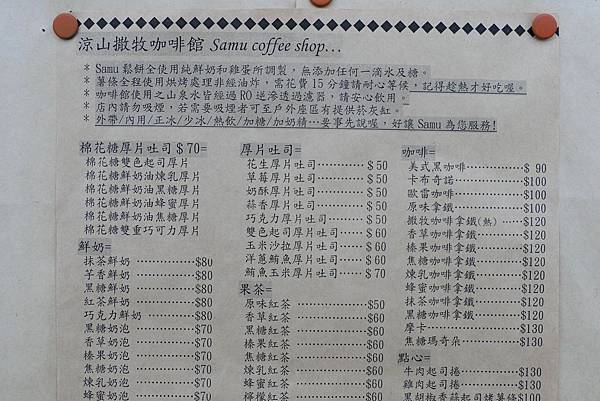 涼山撒牧咖啡館 Samu coffee shop…
* Samu鬆餅全使用純鮮奶和雞蛋所調製，無添加任何一滴水及糖。
* 薯條全程使用烘烤處理非經油炸，需花費15分鐘請耐心等候，記得趁熱才好吃喔。
* 咖啡館使用之山泉水皆經過RO逆滲透過濾器，請安心飲用。
* 店內請勿吸煙，若需要吸煙者可至戶外座區有提供菸灰缸。
* 外帶/內用/正冰/少冰/熱飲/加糖/加奶精…要事先說喔，好讓Samu為您服務!
棉花糖厚片吐司$70=
棉花糖雙色起司厚片
棉花糖鮮奶油煉乳厚片
棉花糖鮮奶油黑糖厚片
棉花糖鮮奶油蜂蜜厚片
棉花糖鮮奶油焦糖厚片
棉花糖雙重巧可力厚片
鮮奶=
抹茶鮮奶 ……………$80
芋香鮮奶 ……………$80
黑糖鮮奶 ……………$80
紅茶鮮奶 ……………$80
巧克力鮮奶 …………$80
黑糖奶泡 ……………$70
香草奶泡 ……………$70
榛果奶泡 ……………$70
焦糖奶泡 ……………$70
煉乳奶泡 ……………$70
蜂蜜奶泡 ……………$70
厚片吐司=
花生厚片吐司…………$50
草莓厚片吐司…………$50
奶酥厚片吐司…………$50
蒜香厚片吐司…………$50
巧克力厚片吐司………$50
雙色起司厚片吐司……$60
玉米沙拉厚片吐司……$60
洋蔥鮪魚厚片吐司……$60
鮪魚玉米厚片吐司……$70
果茶=
原味紅茶 ……………$50
香草紅茶 ……………$60
黑糖紅茶 ……………$60
榛果紅茶 ……………$60
焦糖紅茶 ……………$60
煉乳紅茶 ……………$60
蜂蜜紅茶 ……………$60
檸檬紅茶 ……………$60
咖啡=
美式黑咖啡……………$ 90
卡布奇諾………………$100
歐雷咖啡………………$100
原味拿鐵………………$100
撒牧咖啡拿鐵(熱) ……$120
香草咖啡拿鐵…………$120
榛果咖啡拿鐵…………$120
焦糖咖啡拿鐵…………$120
煉乳咖啡拿鐵…………$120
蜂蜜咖啡拿鐵…………$120
抹茶咖啡拿鐵…………$120
黑糖咖啡拿鐵…………$120
摩卡……………………$130
焦糖瑪奇朵……………$130
點心=
牛肉起司捲……………$130
雞肉起司捲……………$130
黑胡椒香蒜起司烤薯條$100